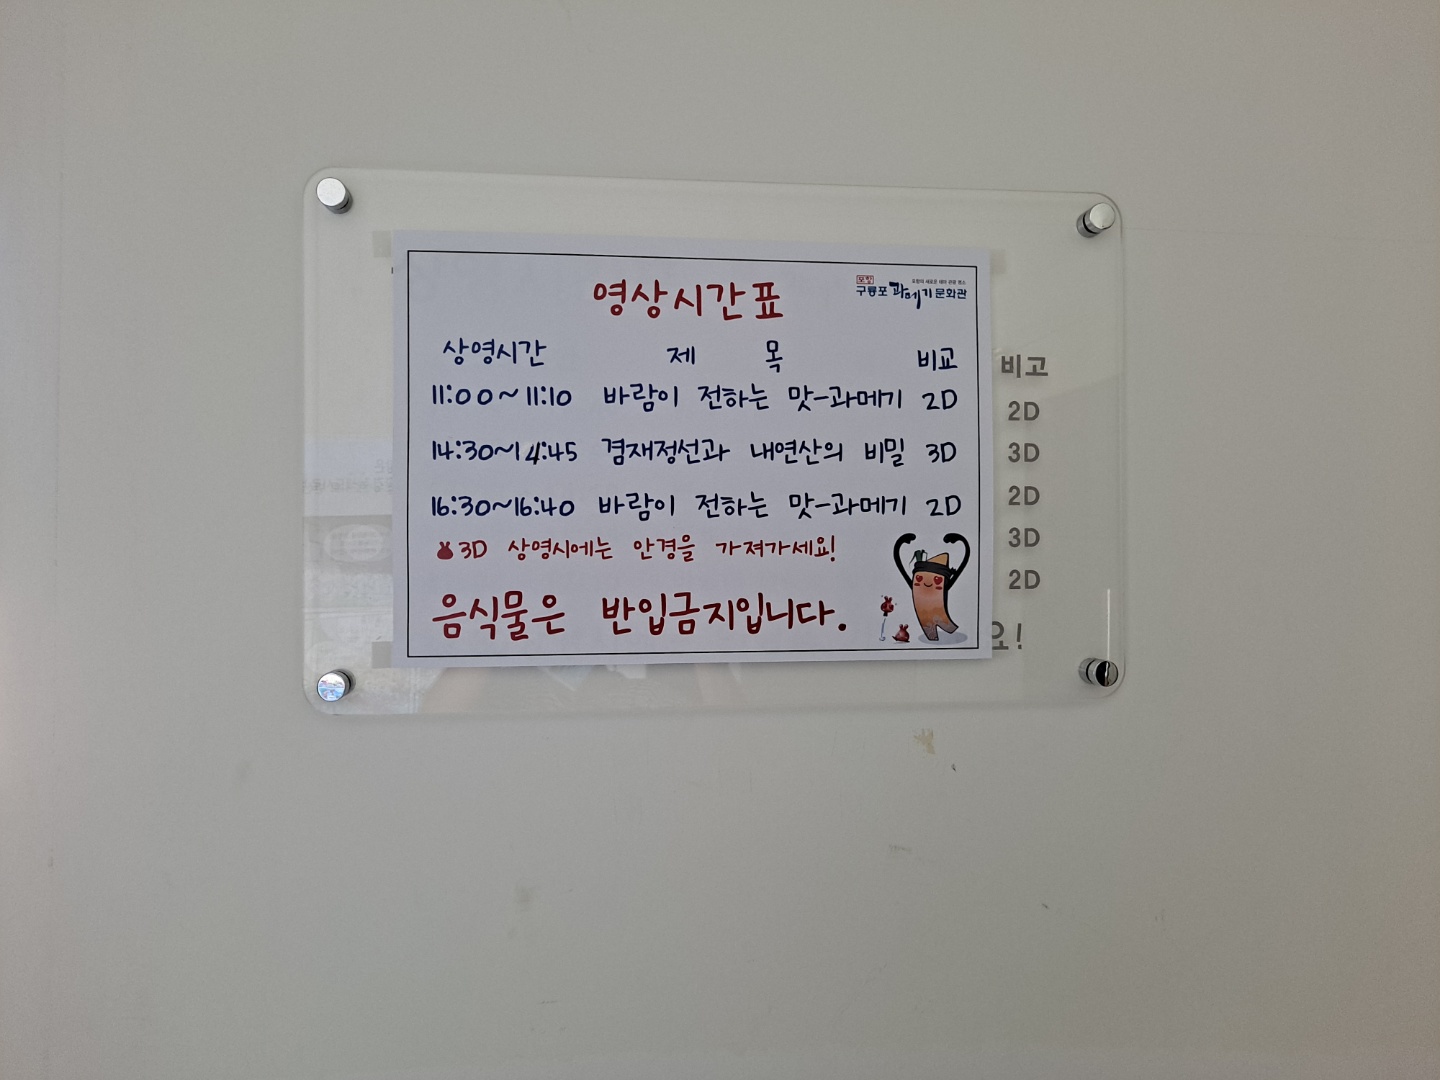 영상시간표
포항
포항의 새로운 테마 관광 명소
구룡포 과메기 문화관
상영시간 제 목 비교
11:00~11:10 바람이 전하는 맛-과메기 2D
14:30~14:45 겸재정선과 내연산의 비밀 3D
16:30~16:40 바람이 전하는 맛-과메기 2D
3D 상영시에는 안경을 가져가세요!
음식물은 반입금지입니다.
비고
2D
3D
2D
3D
2D
요!